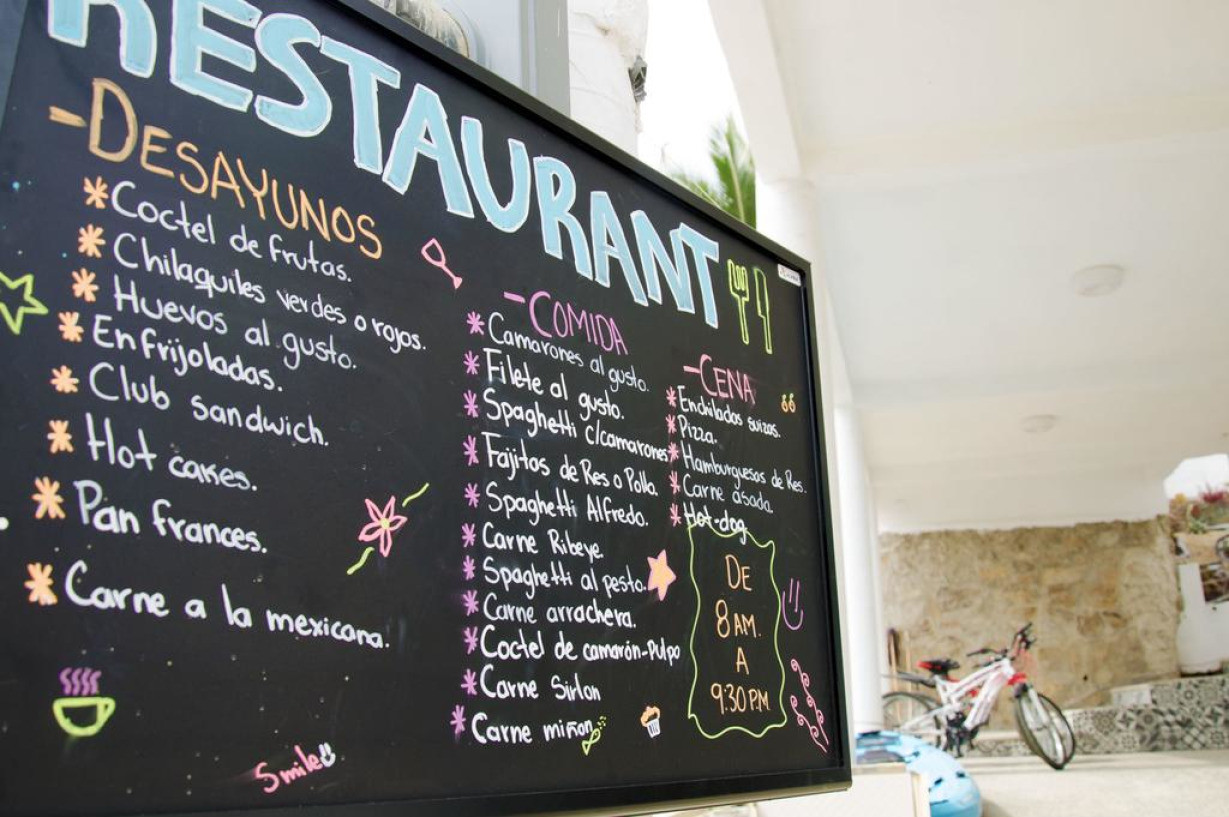 RESTAURANT
-DESAYUNOS
* Coctel de frutas.
* Chilaquiles verdes o rojos.
* Huevos al gusto.
* Enfrijoladas.
* Club sandwich.
* Hot cakes.
* Pan frances.
* Carne a la mexicana.
Smile
-COMIDA
* Camarones al gusto.
* Filete al gusto.
* Spaghetti c/camarones
* Fajitas de Res o Pollo.
* Spaghetti Alfredo.
* Carne Ribeye.
* Spaghetti al pesto.
* Carne arrachera.
* Coctel de camarón-Pulpo
* Carne Sirlon
* Carne miñon
-CENA
* Enchiladas suizas.
* Pizza.
* Hamburguesas de Res.
* Carne asada.
* Hot-dog.
DE
8 AM.
A
9:30 P.M